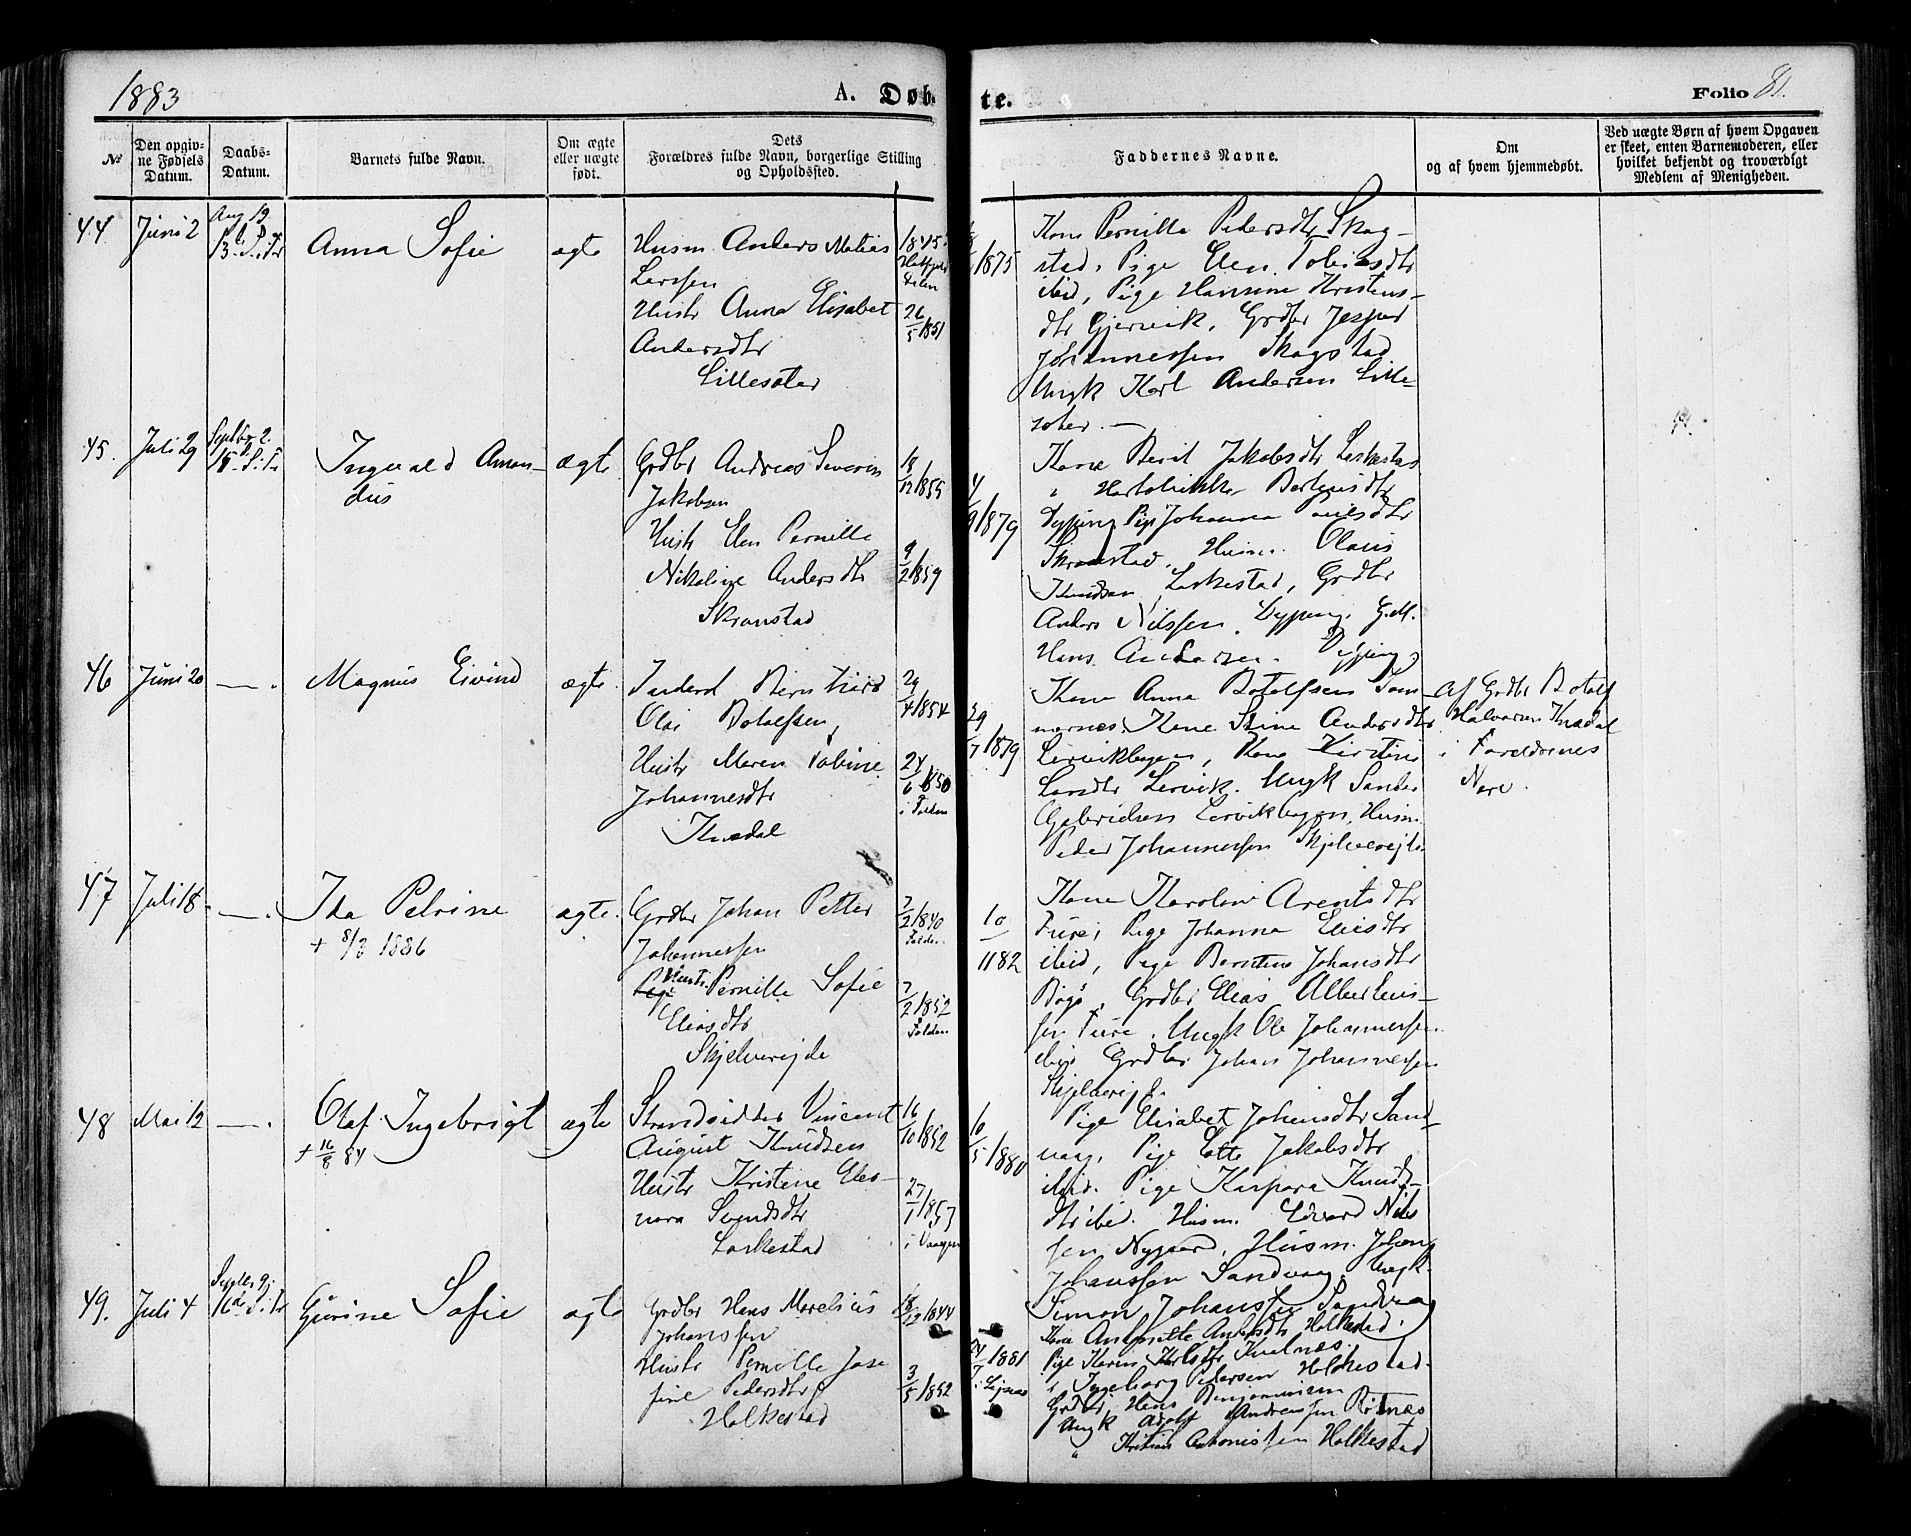 1883
A. Døb-
te.
Folio 81.
№
Den opgiv-
ne Fødsels
Datum.
Daabs-
Datum.
Barnets fulde Navn.
Om ægte
eller uægte
født.
Dets
Forældres fulde Navn, borgerlige Stilling
og Opholdssted.
Faddernes Navne.
Om
og af hvem hjemmedøbt.
Ved uægte Børn af hvem Opgaven
er skeet, enten Barnemoderen, eller
hvilket bekjendt og troværdigt
Medlem af Menigheden.
44.
Juni 2
Aug 19
13 S. e. Tr
Anna Sofie
ægte
Husm Anders Matias
Larssen
Hustr Anna Elisabet
Andersdtr
Lillesæter
1845
26/5 1851
1875
Kone Pernille Pedersdtr Skag-
stad, Pige Elen Tobiasdtr
ibid, Pige Hansine Kristens-
dtr Gjervik, Grdbr Jesper
Johannessen Skagstad
Ungk Karl Andersen Lille-
søter. —
45.
Juli 29
Septbr 2.
15 S. e. Tr
Ingvald Aman-
dus
ægte
Grdbr Andreas Severin
Jakobsen
Hustr Elen Pernille
Nikoline Andersdtr
Skranstad
18/12 1855
9/2 1859
4/9 1879
Kone Berit Jakobsdtr Leskestad
Dypping Pige Johanna
Skranstad, Husm. Olaus
Knudsen Leskestad, Grdbr
Anders Nilssen Dypping. G.M.
Hans Andersen Dypping
46
Juni 20
— .
Magnus Eivind
ægte.
Inderst Bernhard
Olai Botolfsen,
Hustr Maren Tobine
Johannesdtr
Knædal
29/4 1854
24/6 1850
i Folden
29/7 1879
Kone Anna Botolfsen Tom-
mernes. Kone Stine Andersdtr
Lervikbogen, Kone Kirstine
Larsdtr Lervik. Ungk Sander
Gabrielsen Lervikbogen, Husm.
Peder Johannessen Skjelvereide
Af Grdbr Botolf
Halvorsen Knædal
i Forældrenes
Nærv.
47
Juli 18
— .
Ida Petrine
+ 8/3 1886
ægte.
Grdbr Johan Petter
Johannessen
Hustr. Pernille Sofie
Eliasdtr
Skjelvereide
7/2 1840
Folden
7/2 1852
Folden
10/11 82
Kone Karoline Arentsdtr
Fure, Pige Johanna Eliasdtr
ibid, Pige Berntine Johansdtr
Bogø, Grdbr Elias Alberteus-
sen Fure. Ungk Ole Johannessen
ibid Grdbr Johan Johannessen
Skjelvereide.
48
Mai 12
— .
Olaf Ingebrigt
+ 16/8 84
ægte
Strandsidder Vincent
August Knudsen
Hustr Kristine Eleo-
nora Svendsdtr
Laskestad
16/10 1852
27/1 1857
i Vaagen
10/5 1880
Pige Elisabet Johansdtr Sand-
vaag, Pige Lotte Jakobsdtr
ibid. Pige Kaspara Knuds-
dtr ibid. Husm. Edvard Nils
sen Nygaard, Husm. Johan
Johanssen Sandvaag. Ungk.
Simon Johanssen Sandvaag
49.
Juli 4
Septbr 9.
16 S. e. Tr
Gurine Sofie
ægte
Grdbr Hans Marelius
Johanssen
Hustr Pernille Jose
fine Pedersdtr
Holkestad
18/12 1844
3/5 1852
24/7 1881
Kone Antonette Andersdtr Holkestad.
Pige Karen Karlsdtr Kvalnes.
" Ingeborg Pedersen Holkestad
Grdbr Hans Benjaminsen
Ungk Adolf Andreassen Botnes
" Kristian Antonissen Holkestad